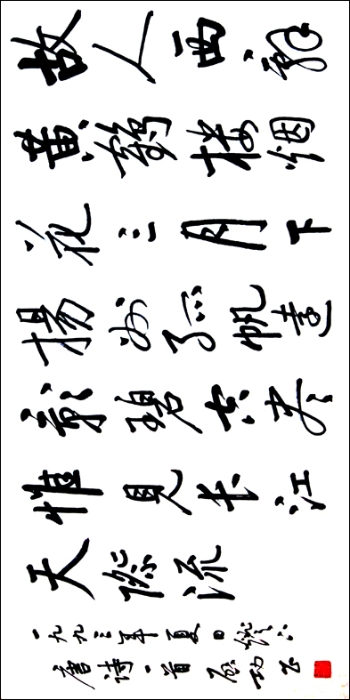 故人西辭
黄鶴樓烟
花三月下
揚州孤帆遠
影碧空盡
惟見長江
天際流
一九九三年夏日
唐詩一首